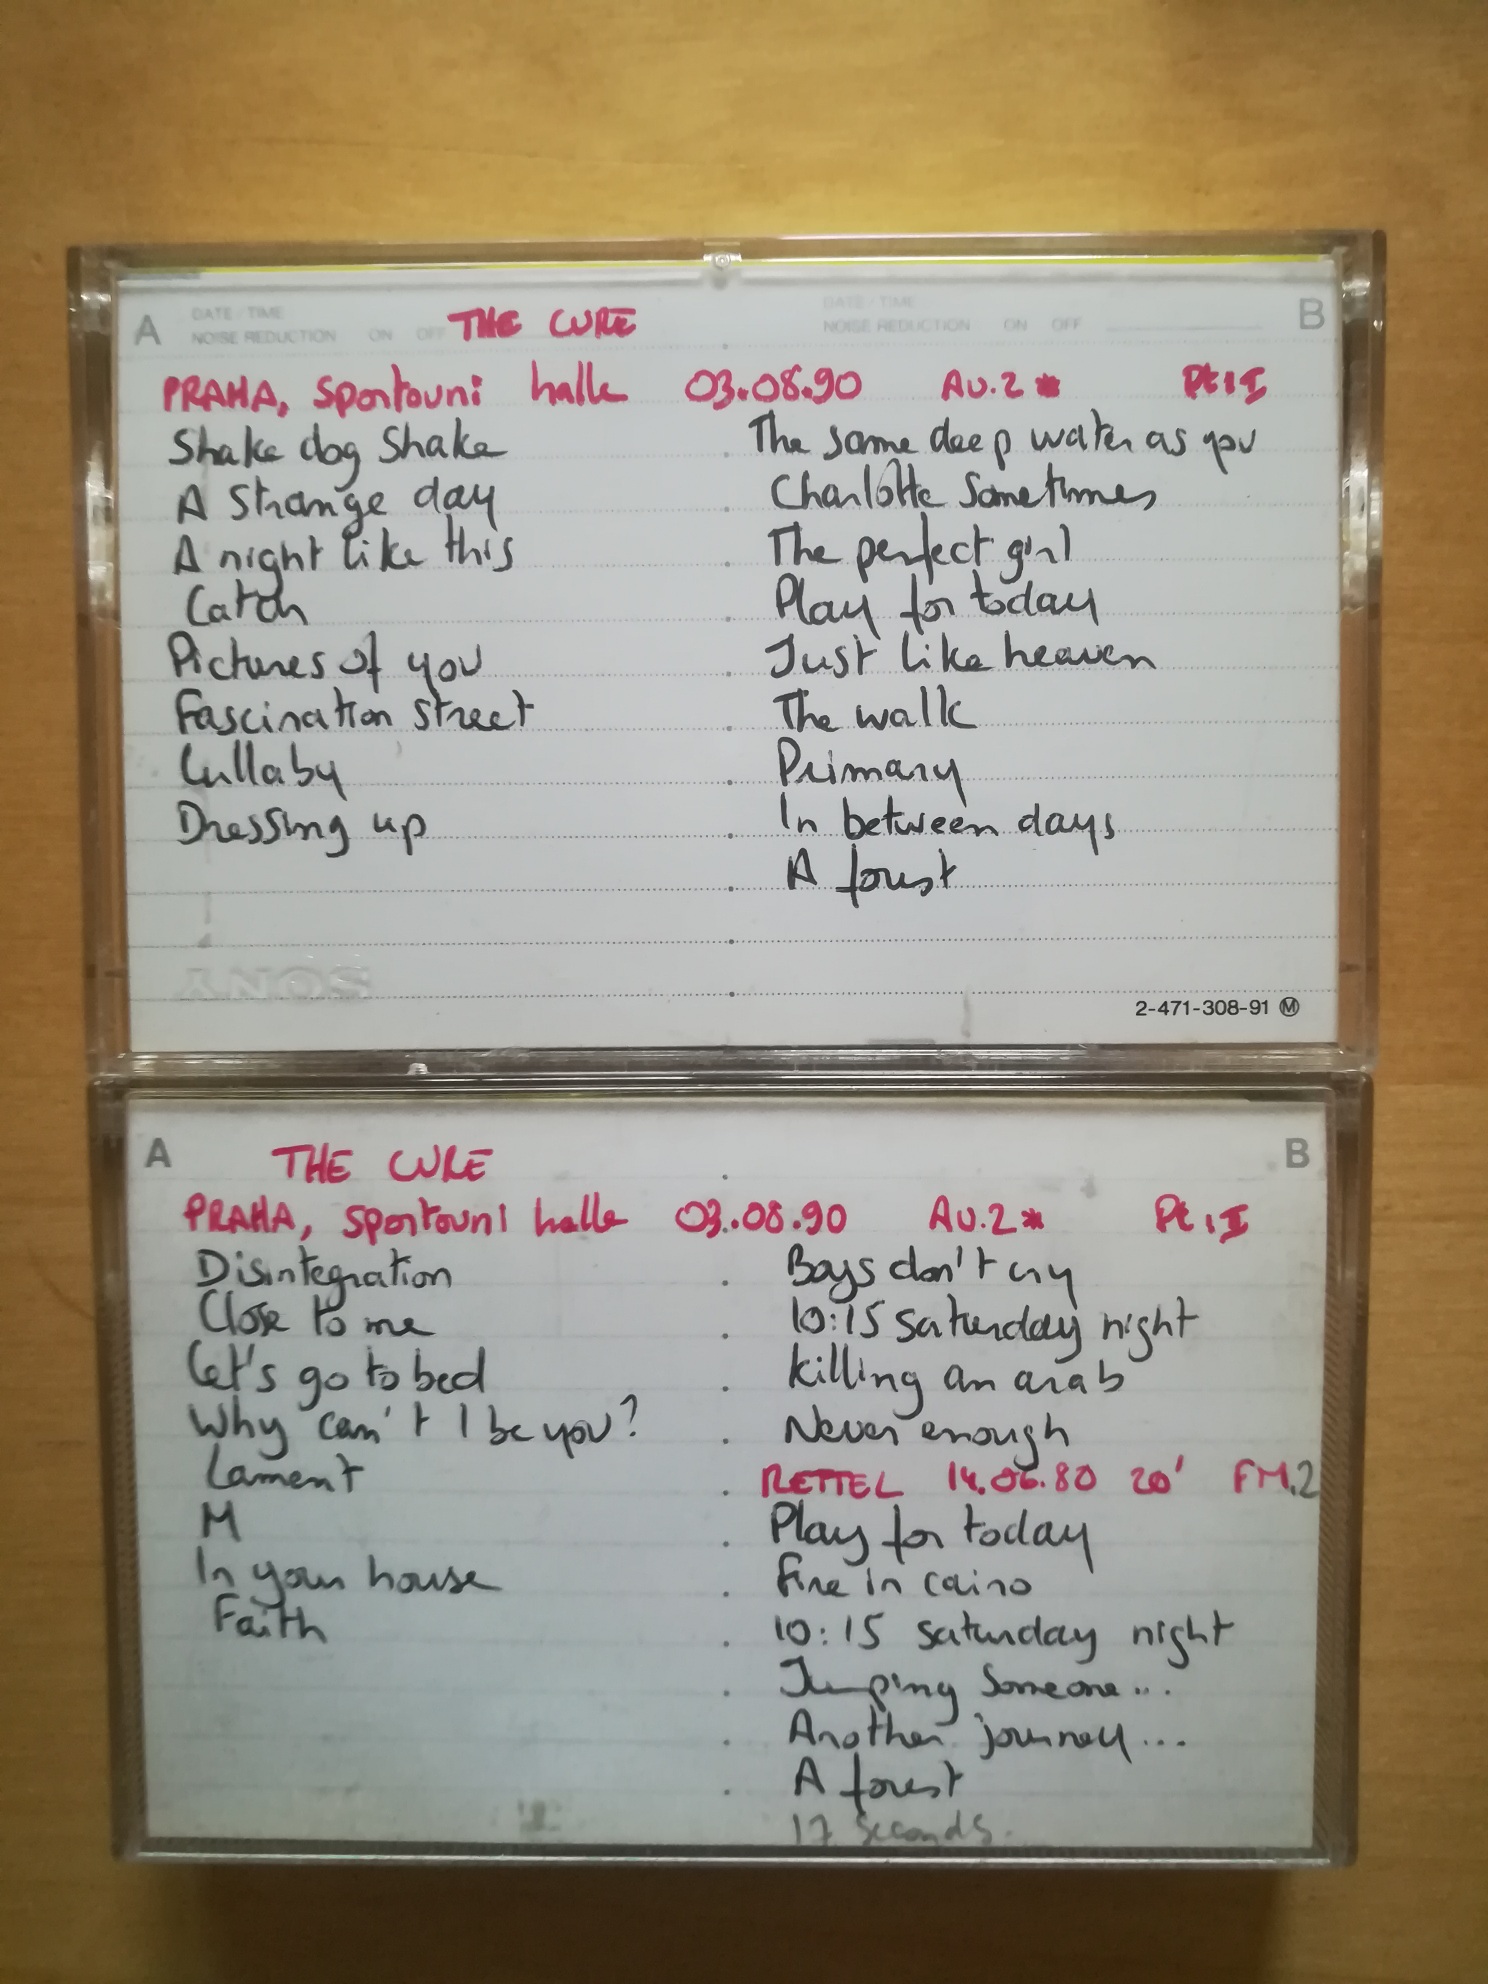 A DATE / TIME DATE / TIME B
NOISE REDUCTION ON OFF THE CURE NOISE REDUCTION ON OFF
PRAHA, Sportouni halle 03.08.90 AU.2* Pt.I
Shake dog Shake
A Strange day
A night like this
Catch
Pictures of you
Fascination street
Lullaby
Dressing up
The same deep water as you
Charlotte Sometimes
The perfect girl
Play for today
Just like heaven
The walk
Primary
In between days
A forest
SONY
2-471-308-91 M
A THE CURE B
PRAHA, Sportouni halle 03.08.90 AU.2* Pt.I
Disintegration
Close to me
Let's go to bed
Why can't I be you?
Lament
M
In your house
Faith
Boys don't cry
10:15 saturday night
killing an arab
Never enough
RETTEL 14.06.80 20' FM.2
Play for today
Fire in cairo
10:15 saturday night
Jumping Someone...
Another journey...
A forest
17 Seconds.